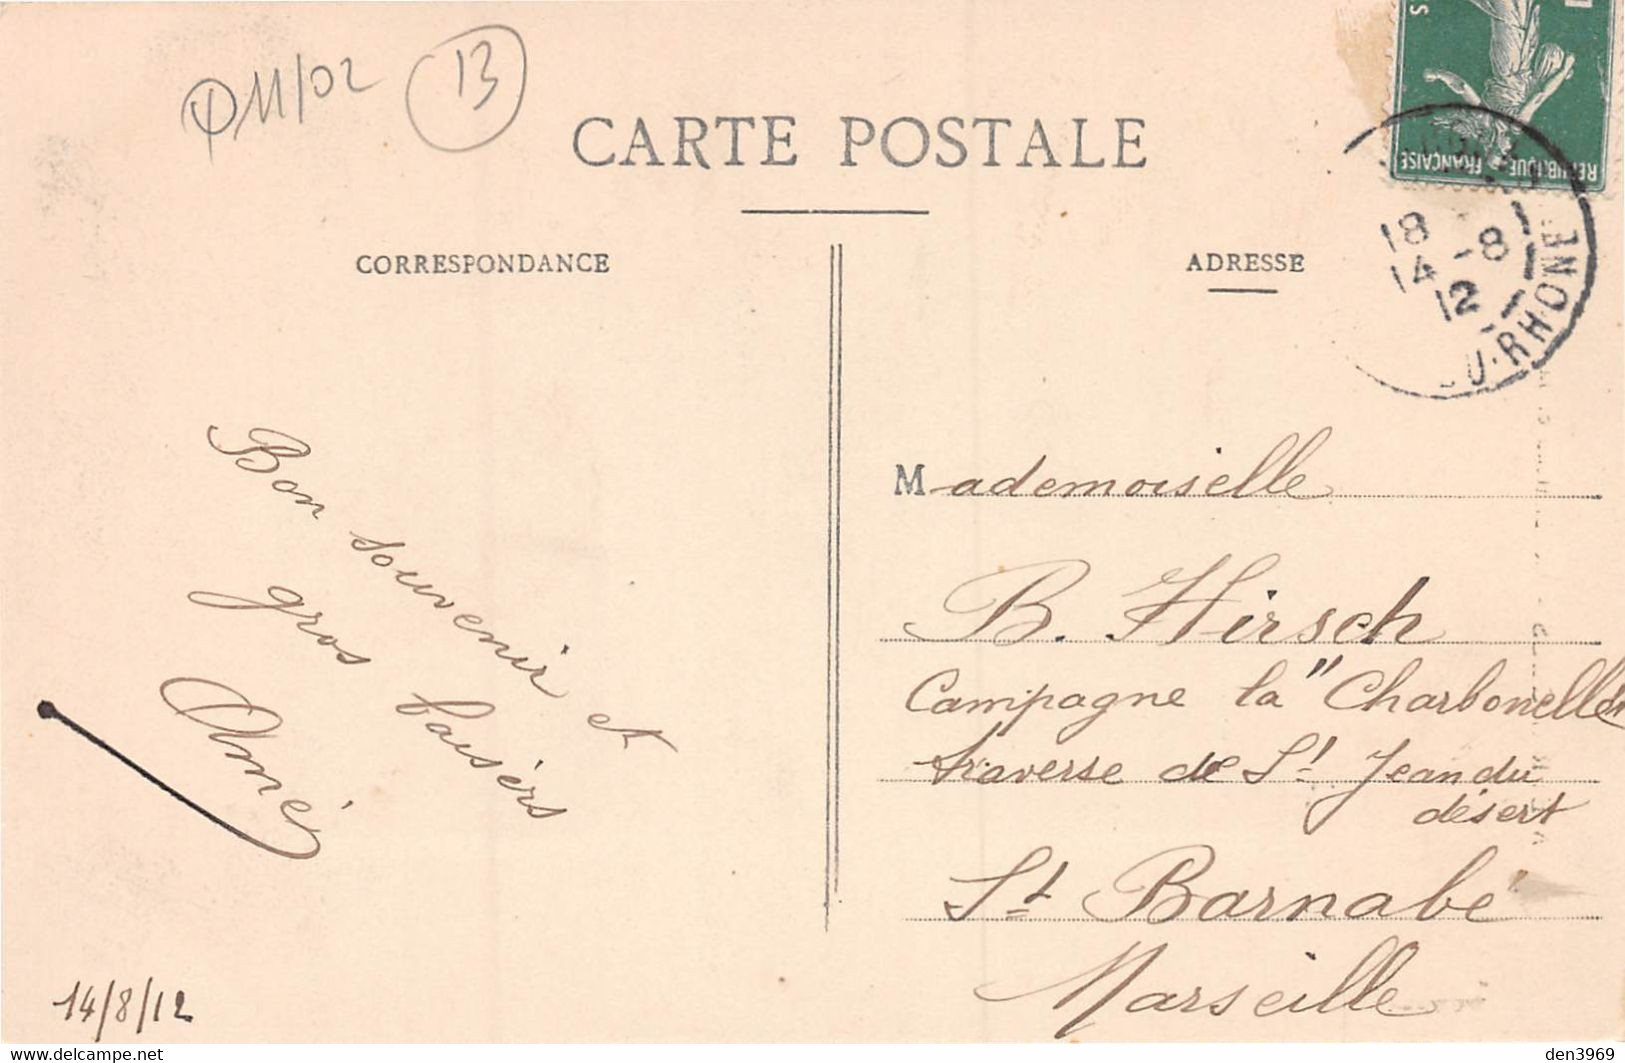 Φ11/02 13
CARTE POSTALE
CORRESPONDANCE
Bon souvenir et
gros baisers
Aimé
14/8/12
ADRESSE
RÉPUBLIQUE FRANÇAISE
18
14 -8
12
U-RHONE
Mademoiselle
B. Hirsch
Campagne la "Charbonelle"
traverse de St Jean du
désert
St Barnabé
Marseille
den3969